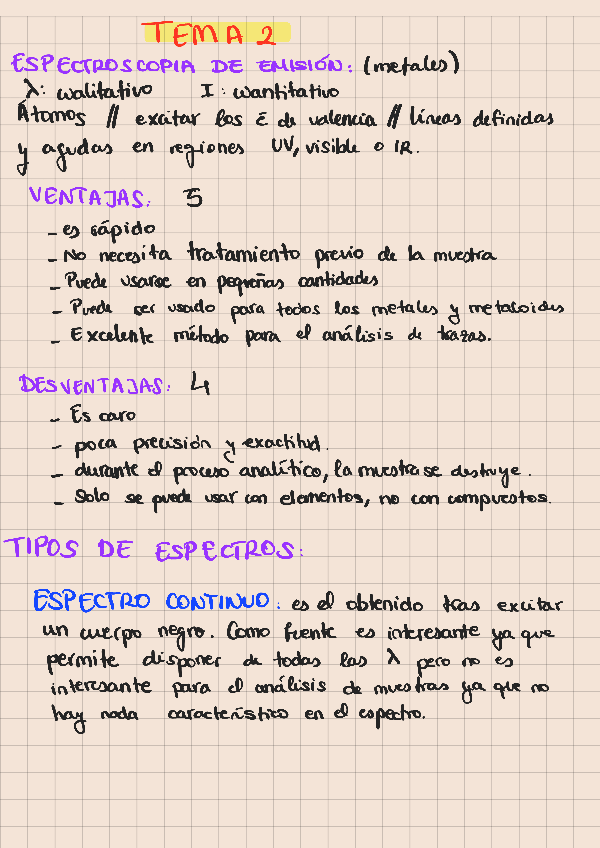 TEMA 2
ESPECTROSCOPIA DE EMISIÓN: (metales)
λ: cualitativo I: cuantitativo
Átomos // excitar los ē de valencia // líneas definidas
y agudas en regiones UV, visible o IR.
VENTAJAS: 5
- es rápido
- No necesita tratamiento previo de la muestra
- Puede usarse en pequeñas cantidades
- Puede ser usado para todos los metales y metaloides
- Excelente método para el análisis de trazas.
DESVENTAJAS: 4
- Es caro
- poca precisión y exactitud.
- durante el proceso analítico, la muestra se destruye.
- Solo se puede usar con elementos, no con compuestos.
TIPOS DE ESPECTROS:
ESPECTRO CONTINUO: es el obtenido tras excitar
un cuerpo negro. Como fuente es interesante ya que
permite disponer de todas las λ pero no es
interesante para el análisis de muestras ya que no
hay nada característico en el espectro.